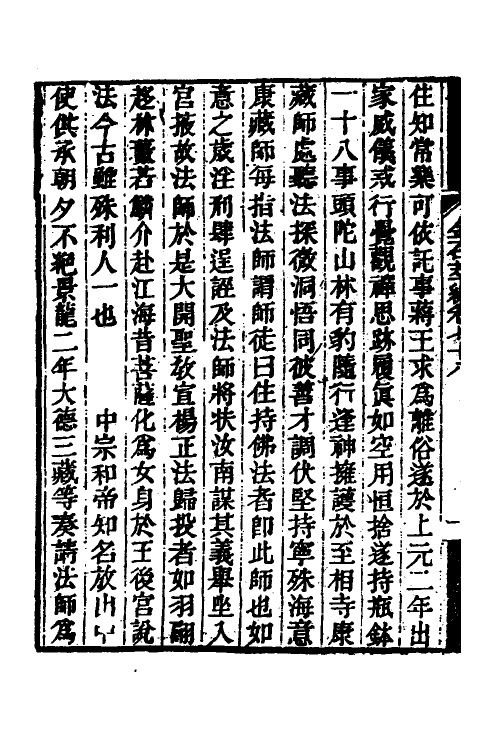 住知常樂可依託事蔣王求爲離俗遂於上元二年出
家威儀戒行覺觀禪思跡履真如空用恒捨遂持瓶鉢
一十八事頭陀山林有豹隨行逢神擁護於至相寺康
藏師處聽法探微洞悟同彼善才調伏堅持寧殊海意
康藏師每指法師謂師徒曰住持佛法者即此師也如
意之歲淫刑肆逞誣及法師將狀汝南謀其義舉坐入
宮掖故法師於是大開聖敎宣楊正法歸投者如羽翮
趍林藪若鱗介赴江海昔菩薩化爲女身於王後宮說
法今古雖殊利人一也 中宗和帝知名放出
使供承朝夕不絕景龍二年大德三藏等奏請法師爲